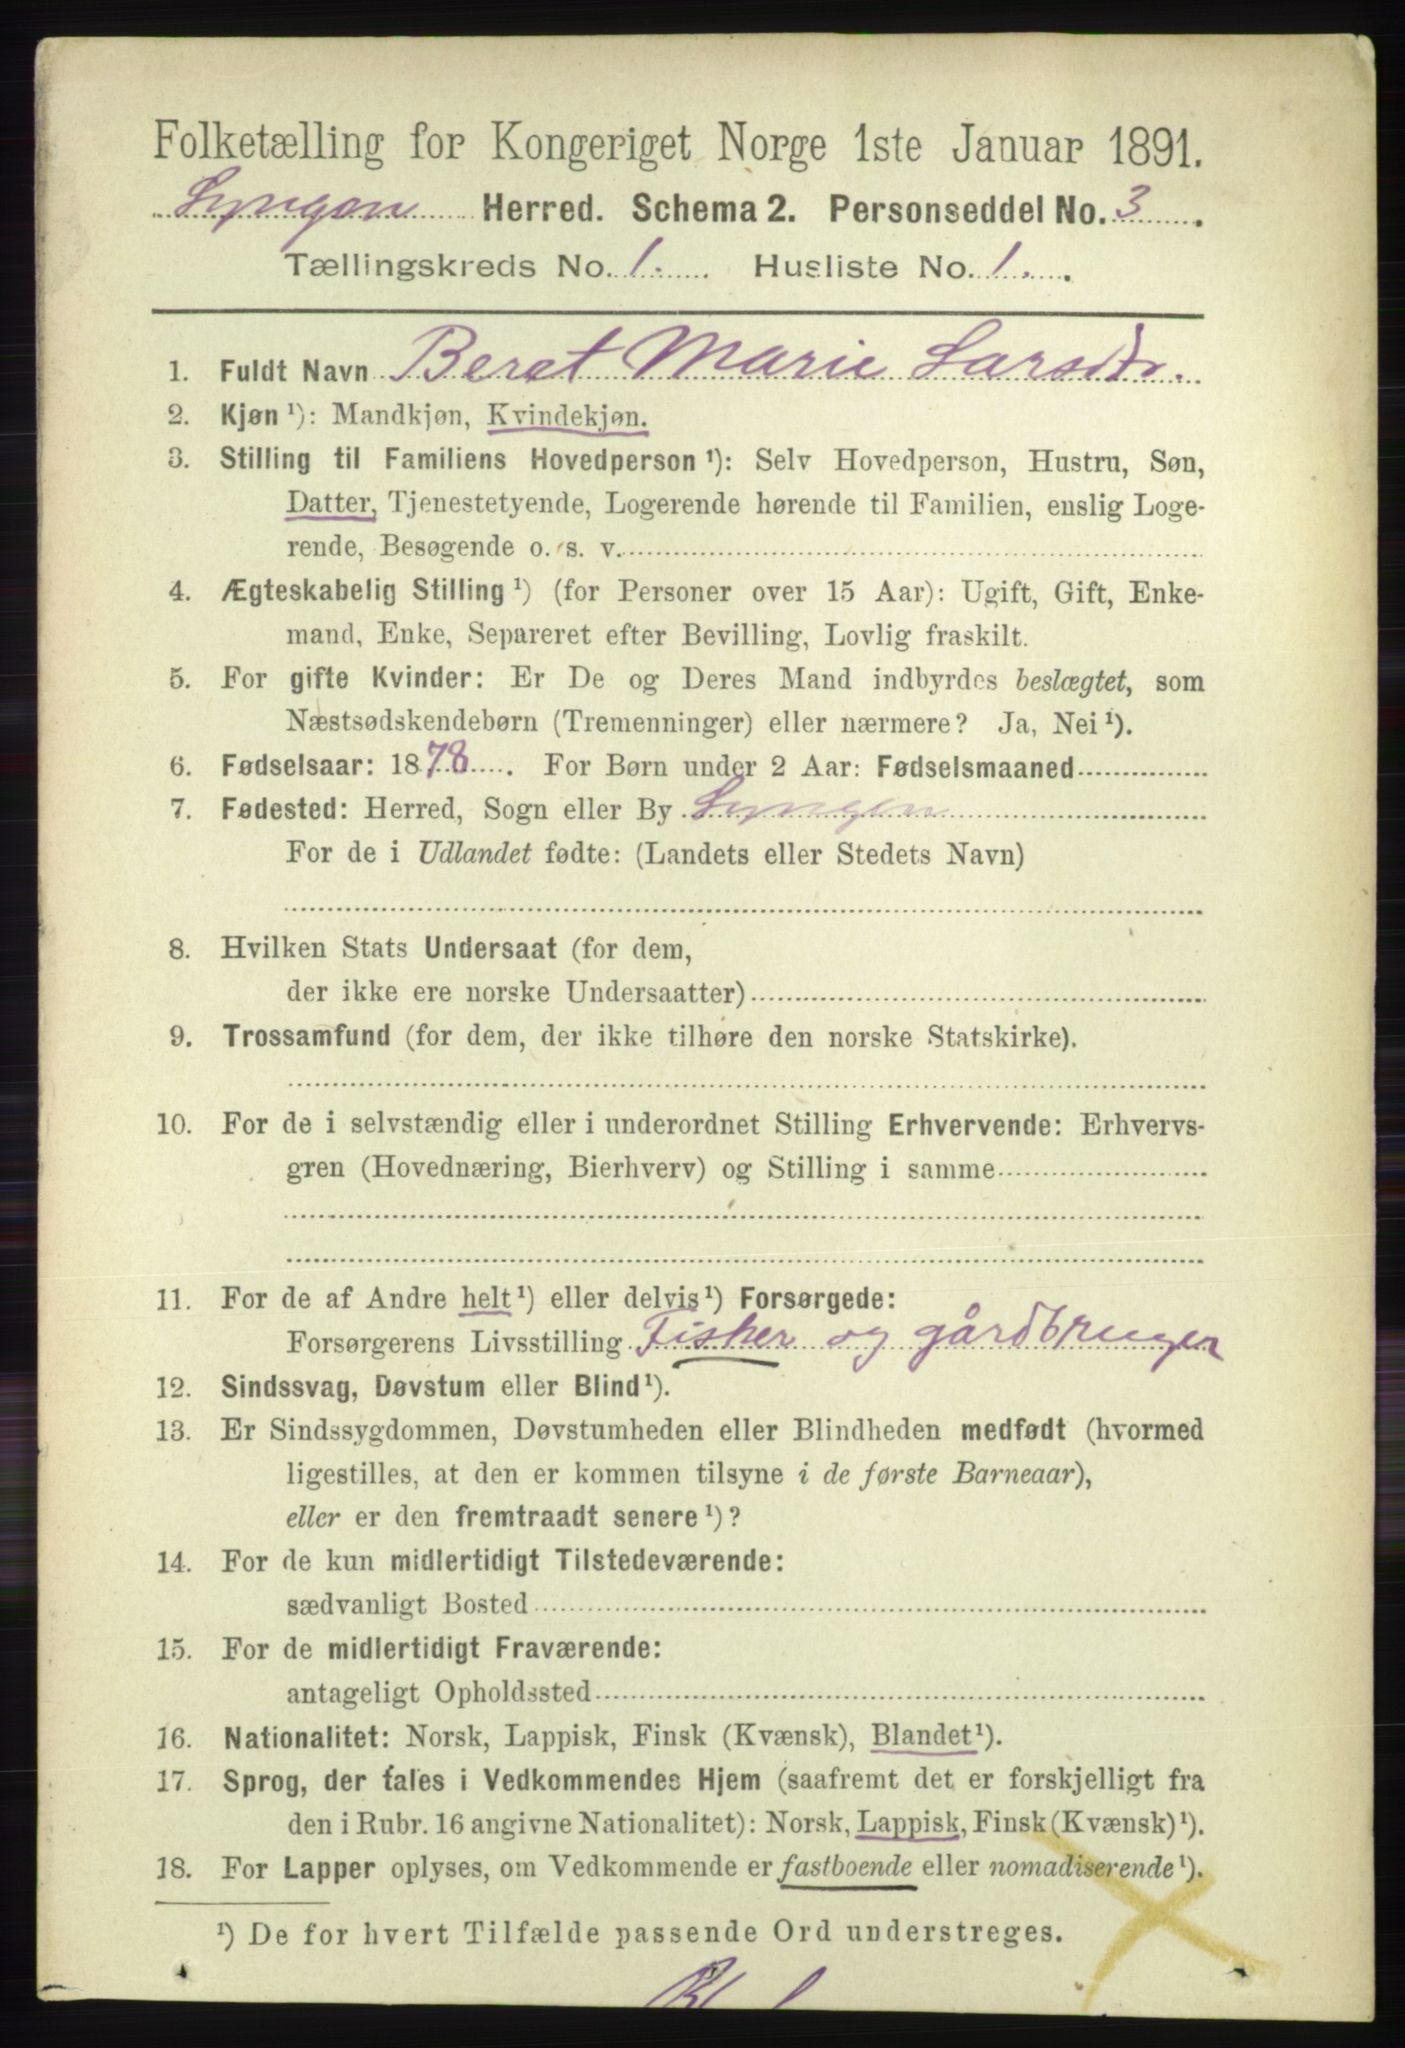 Folketælling for Kongeriget Norge 1ste Januar 1891.
Lyngen Herred. Schema 2. Personseddel No. 3.
Tællingskreds No. 1. Husliste No. 1.
1. Fuldt Navn Beret Marie Larsdtr.
2. Kjøn ¹): Mandkjøn, Kvindekjøn.
3. Stilling til Familiens Hovedperson ¹): Selv Hovedperson, Hustru, Søn,
Datter, Tjenestetyende, Logerende hørende til Familien, enslig Loge-
rende, Besøgende o. s. v.
4. Ægteskabelig Stilling ¹) (for Personer over 15 Aar): Ugift, Gift, Enke-
mand, Enke, Separeret efter Bevilling, Lovlig fraskilt.
5. For gifte Kvinder: Er De og Deres Mand indbyrdes beslægtet, som
Næstsødskendebørn (Tremenninger) eller nærmere? Ja, Nei ¹).
6. Fødselsaar: 1878. For Børn under 2 Aar: Fødselsmaaned
7. Fødested: Herred, Sogn eller By Lyngen
For de i Udlandet fødte: (Landets eller Stedets Navn)
8. Hvilken Stats Undersaat (for dem,
der ikke ere norske Undersaatter)
9. Trossamfund (for dem, der ikke tilhøre den norske Statskirke).
10. For de i selvstændig eller i underordnet Stilling Erhvervende: Erhvervs-
gren (Hovednæring, Bierhverv) og Stilling i samme
11. For de af Andre helt ¹) eller delvis ¹) Forsørgede:
Forsørgerens Livsstilling Fisker og gårdbruger
12. Sindssvag, Døvstum eller Blind ¹).
13. Er Sindssygdommen, Døvstumheden eller Blindheden medfødt (hvormed
ligestilles, at den er kommen tilsyne i de første Barneaar),
eller er den fremtraadt senere ¹)?
14. For de kun midlertidigt Tilstedeværende:
sædvanligt Bosted
15. For de midlertidigt Fraværende:
antageligt Opholdssted
16. Nationalitet: Norsk, Lappisk, Finsk (Kvænsk), Blandet ¹).
17. Sprog, der tales i Vedkommendes Hjem (saafremt det er forskjelligt fra
den i Rubr. 16 angivne Nationalitet): Norsk, Lappisk, Finsk (Kvænsk) ¹).
18. For Lapper oplyses, om Vedkommende er fastboende eller nomadiserende ¹).
¹) De for hvert Tilfælde passende Ord understreges.